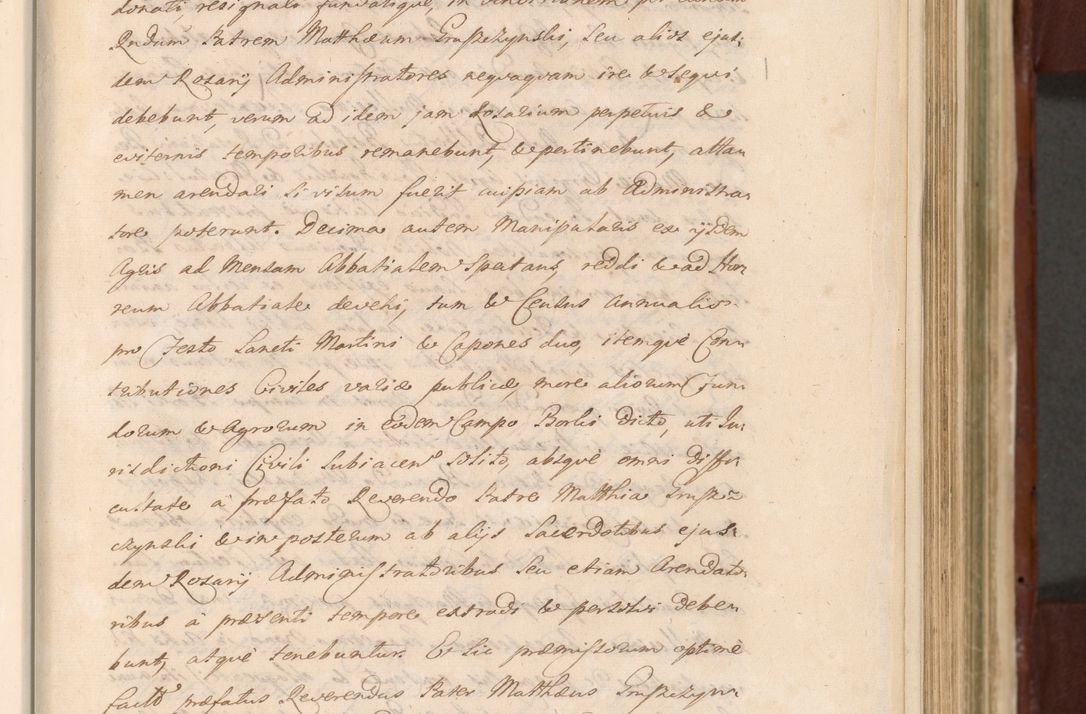 donati, resignati fundatique, in venditionem per eundem
Rndum Patrem Matthæum Gruszczynski, seu alios ejus:
dem Rosarij Administratores neqvaqvam ire & seqvi
debebunt, verum ad idem jam Rosarium perpetuis &
eviternis temporibus remanebunt, & pertinebunt, attan
men arendari si visum fuerit cuipiam ab Administra:
tore poterunt. Decima autem Manipularis ex ijsdem
Agris ad Mensam Abbatialem spectans, reddi & ad Hor:
reum Abbatiale devehi, tum & Census annualis
pro Festo Sancti Martini & Capones duo, itemqve Con:
tributiones Civiles variæ publicæ, more aliorum Fun:
dorum & Agrorum in eodem Campo Borki dicto, uti Ju:
risdictioni Civili subiacen: solito, absqve omni diffi:
cultate à præfato Reverendo Patre Matthia Grusz:
czynski & in posterum ab alijs Sacerdotibus ejus:
dem Rosarij Administratoribus seu etiam Arendato:
ribus à præsenti tempore extrodi & persolvi debe:
bunt, atqve tenebuntur. Et sic præmissorum optimè
factô præfatus Reverendus Pater Matthæus Gruszczyn: